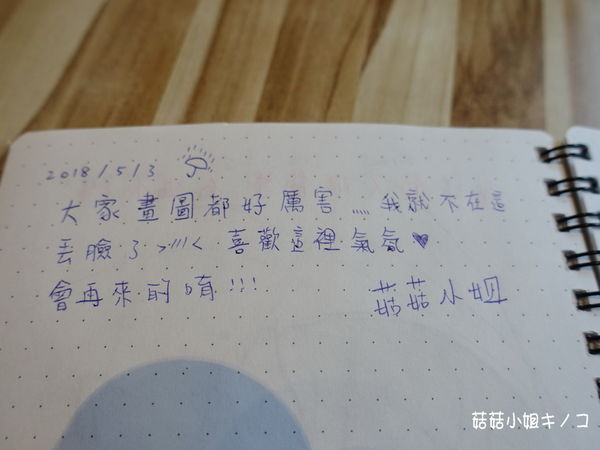 2018/5/3
大家畫圖都好厲害,,,,,我就不在這
丟臉了>////< 喜歡這裡氣氛♥
會再來的唷!!!
菇菇小姐
菇菇小姐キノコ